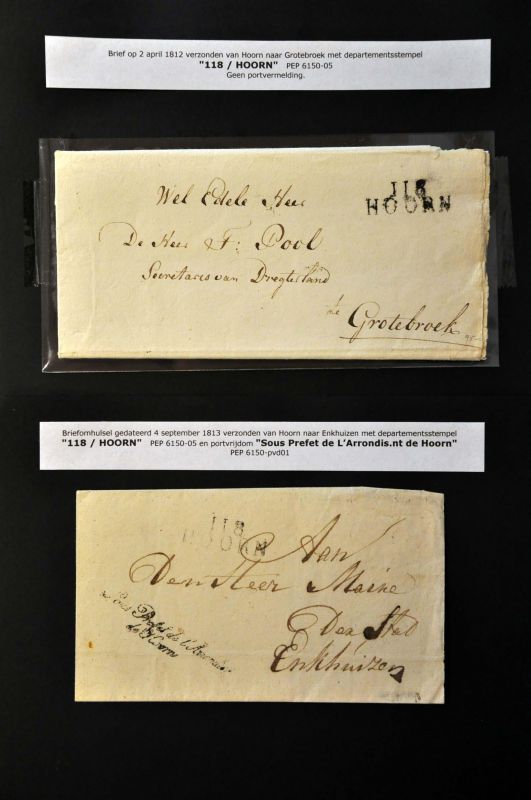 Brief op 2 april 1812 verzonden van Hoorn naar Grotebroek met departementsstempel
"118 / HOORN" PEP 6150-05
Geen portvermelding.
118
HOORN
Wel Edele Heer
De Heer F: Pool
Secretaris van Dregterland
te
Grotebroek
Briefomhulsel gedateerd 4 september 1813 verzonden van Hoorn naar Enkhuizen met departementsstempel
"118 / HOORN" PEP 6150-05 en portvrijdom "Sous Prefet de L'Arrondis.nt de Hoorn"
PEP 6150-pvd01
118
HOORN
Aan
Den Heer Maire
Der Stad
Enkhuizen
Sous Prefet de L'Arrondis
de Hoorn